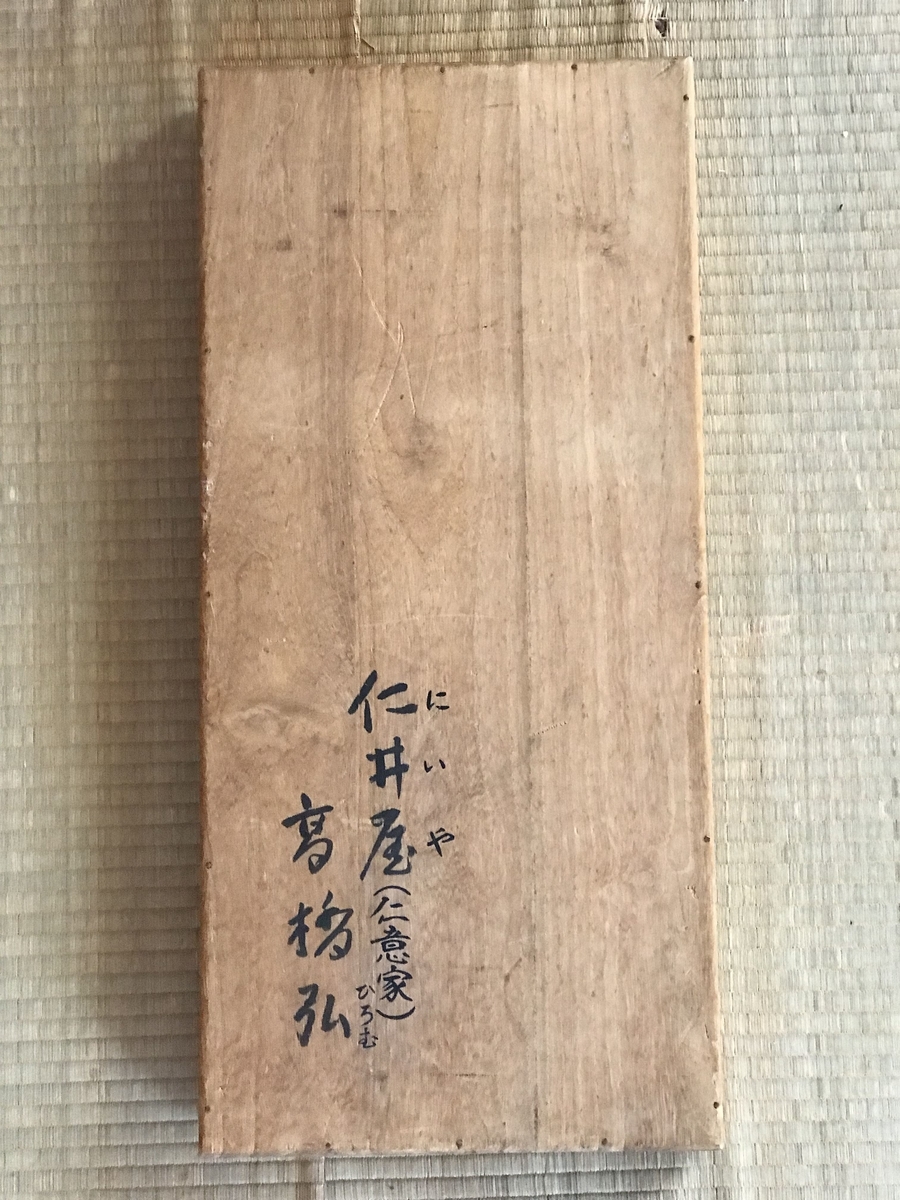 にいや
仁井屋(仁意家)
ひろむ
高橋弘